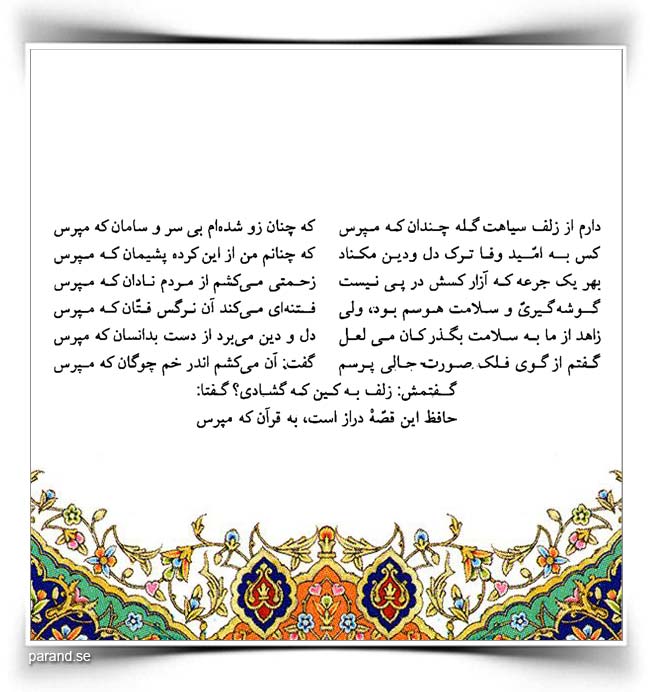 دارم از زلف سیاهت گله چندان که مپرس که چنان زو شده‌ام بی سر و سامان که مپرس
کس به امّید وفا ترک دل ودین مکناد که چنانم من از این کرده پشیمان که مپرس
بهر یک جرعه که آزار کسش در پی نیست زحمتی می‌کشم از مردم نادان که مپرس
گوشه‌گیری و سلامت هوسم بود، ولی فتنه‌ای می‌کند آن نرگس فتّان که مپرس
زاهد از ما به سلامت بگذر کان می لعل دل و دین می‌برد از دست بدانسان که مپرس
گفتم از گوی فلک صورت حالی پرسم گفت: آن می‌کشم اندر خم چوگان که مپرس
گفتمش: زلف به کین که گشادی؟ گفتا:
حافظ این قصّهٔ دراز است، به قرآن که مپرس
parand.se